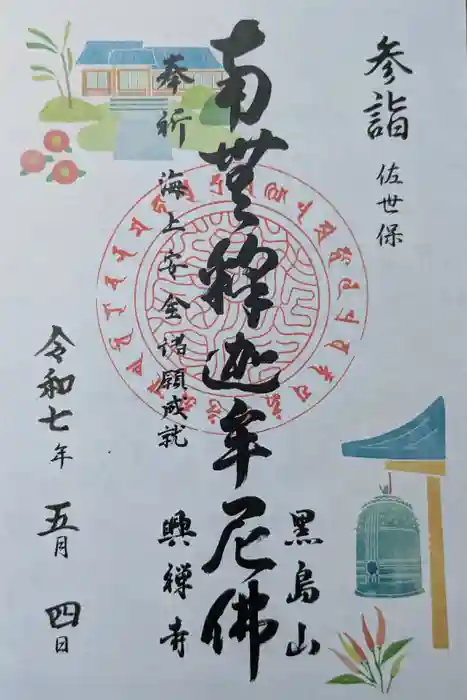 参詣 佐世保
南無釋迦牟尼佛
黒島山
奉祈 海上安全諸願成就
興禅寺
令和七年 五月 四日